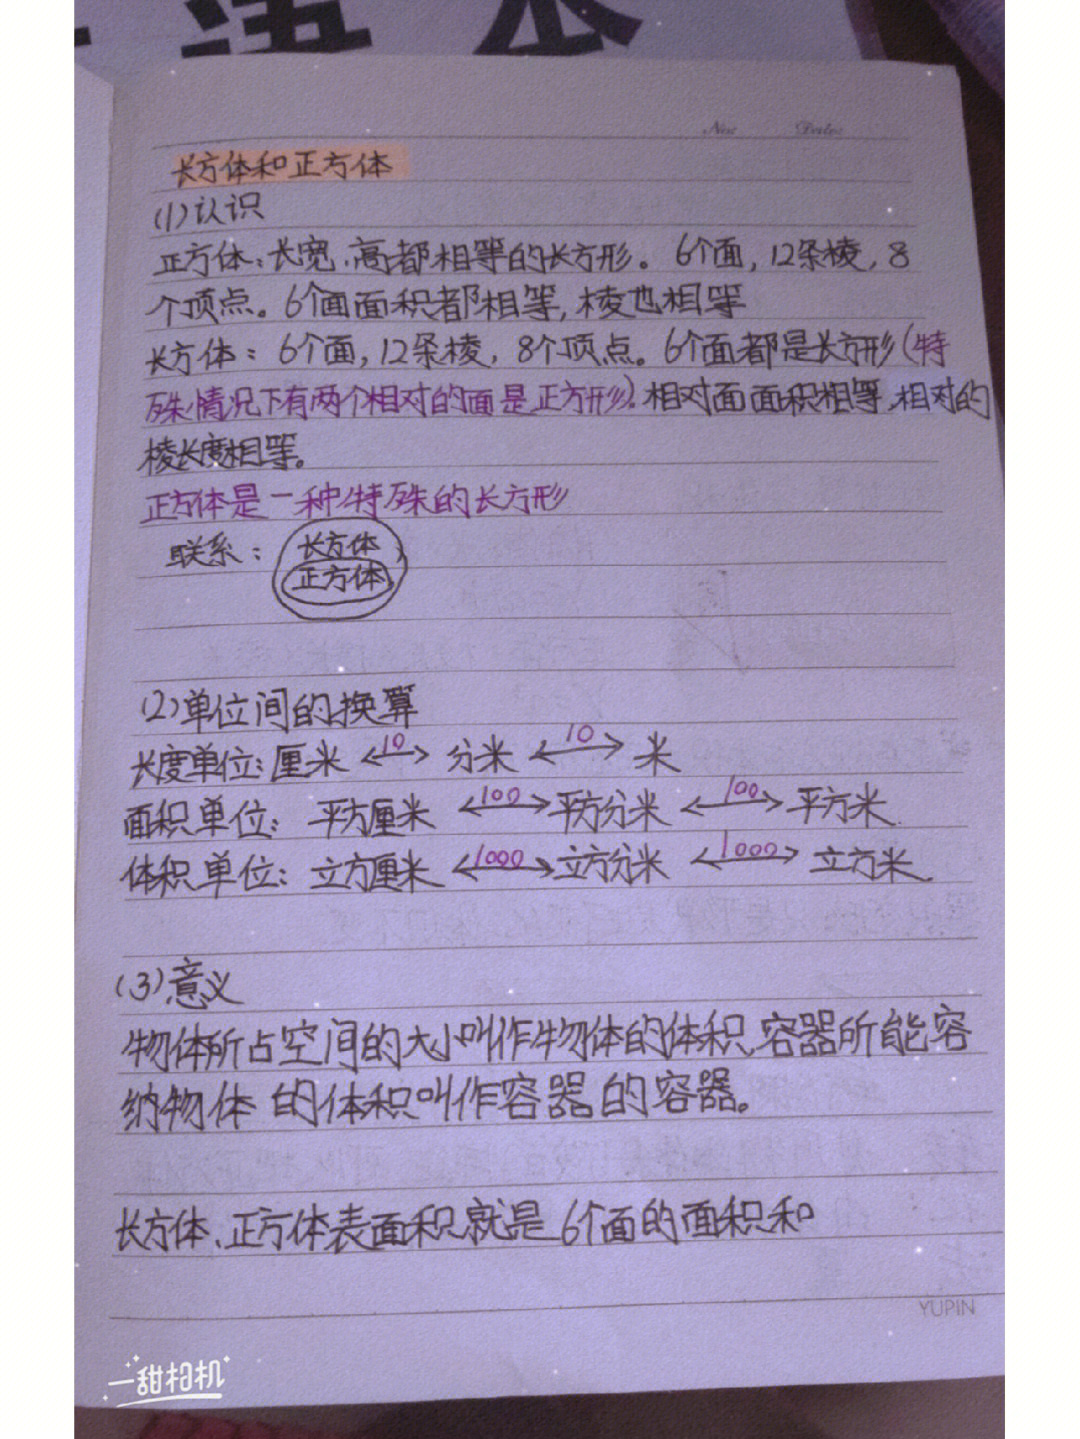 长方体和正方体
(1)认识
正方体:长宽、高都相等的长方形。6个面,12条棱,8
个顶点。6个面面积都相等,棱也相等
长方体:6个面,12条棱,8个顶点。6个面都是长方形(特
殊情况下有两个相对的面是正方形)。相对面面积相等,相对的
棱长度相等。
正方体是一种特殊的长方形
联系:长方体
正方体
(2)单位间的换算
长度单位:厘米 ←10→ 分米 ←10→ 米
面积单位:平方厘米 ←100→ 平方分米 ←100→ 平方米
体积单位:立方厘米 ←1000→ 立方分米 ←1000→ 立方米
(3)意义
物体所占空间的大小叫作物体的体积,容器所能容
纳物体的体积叫作容器的容器。
长方体、正方体表面积就是6个面的面积和
YUPIN
一甜相机